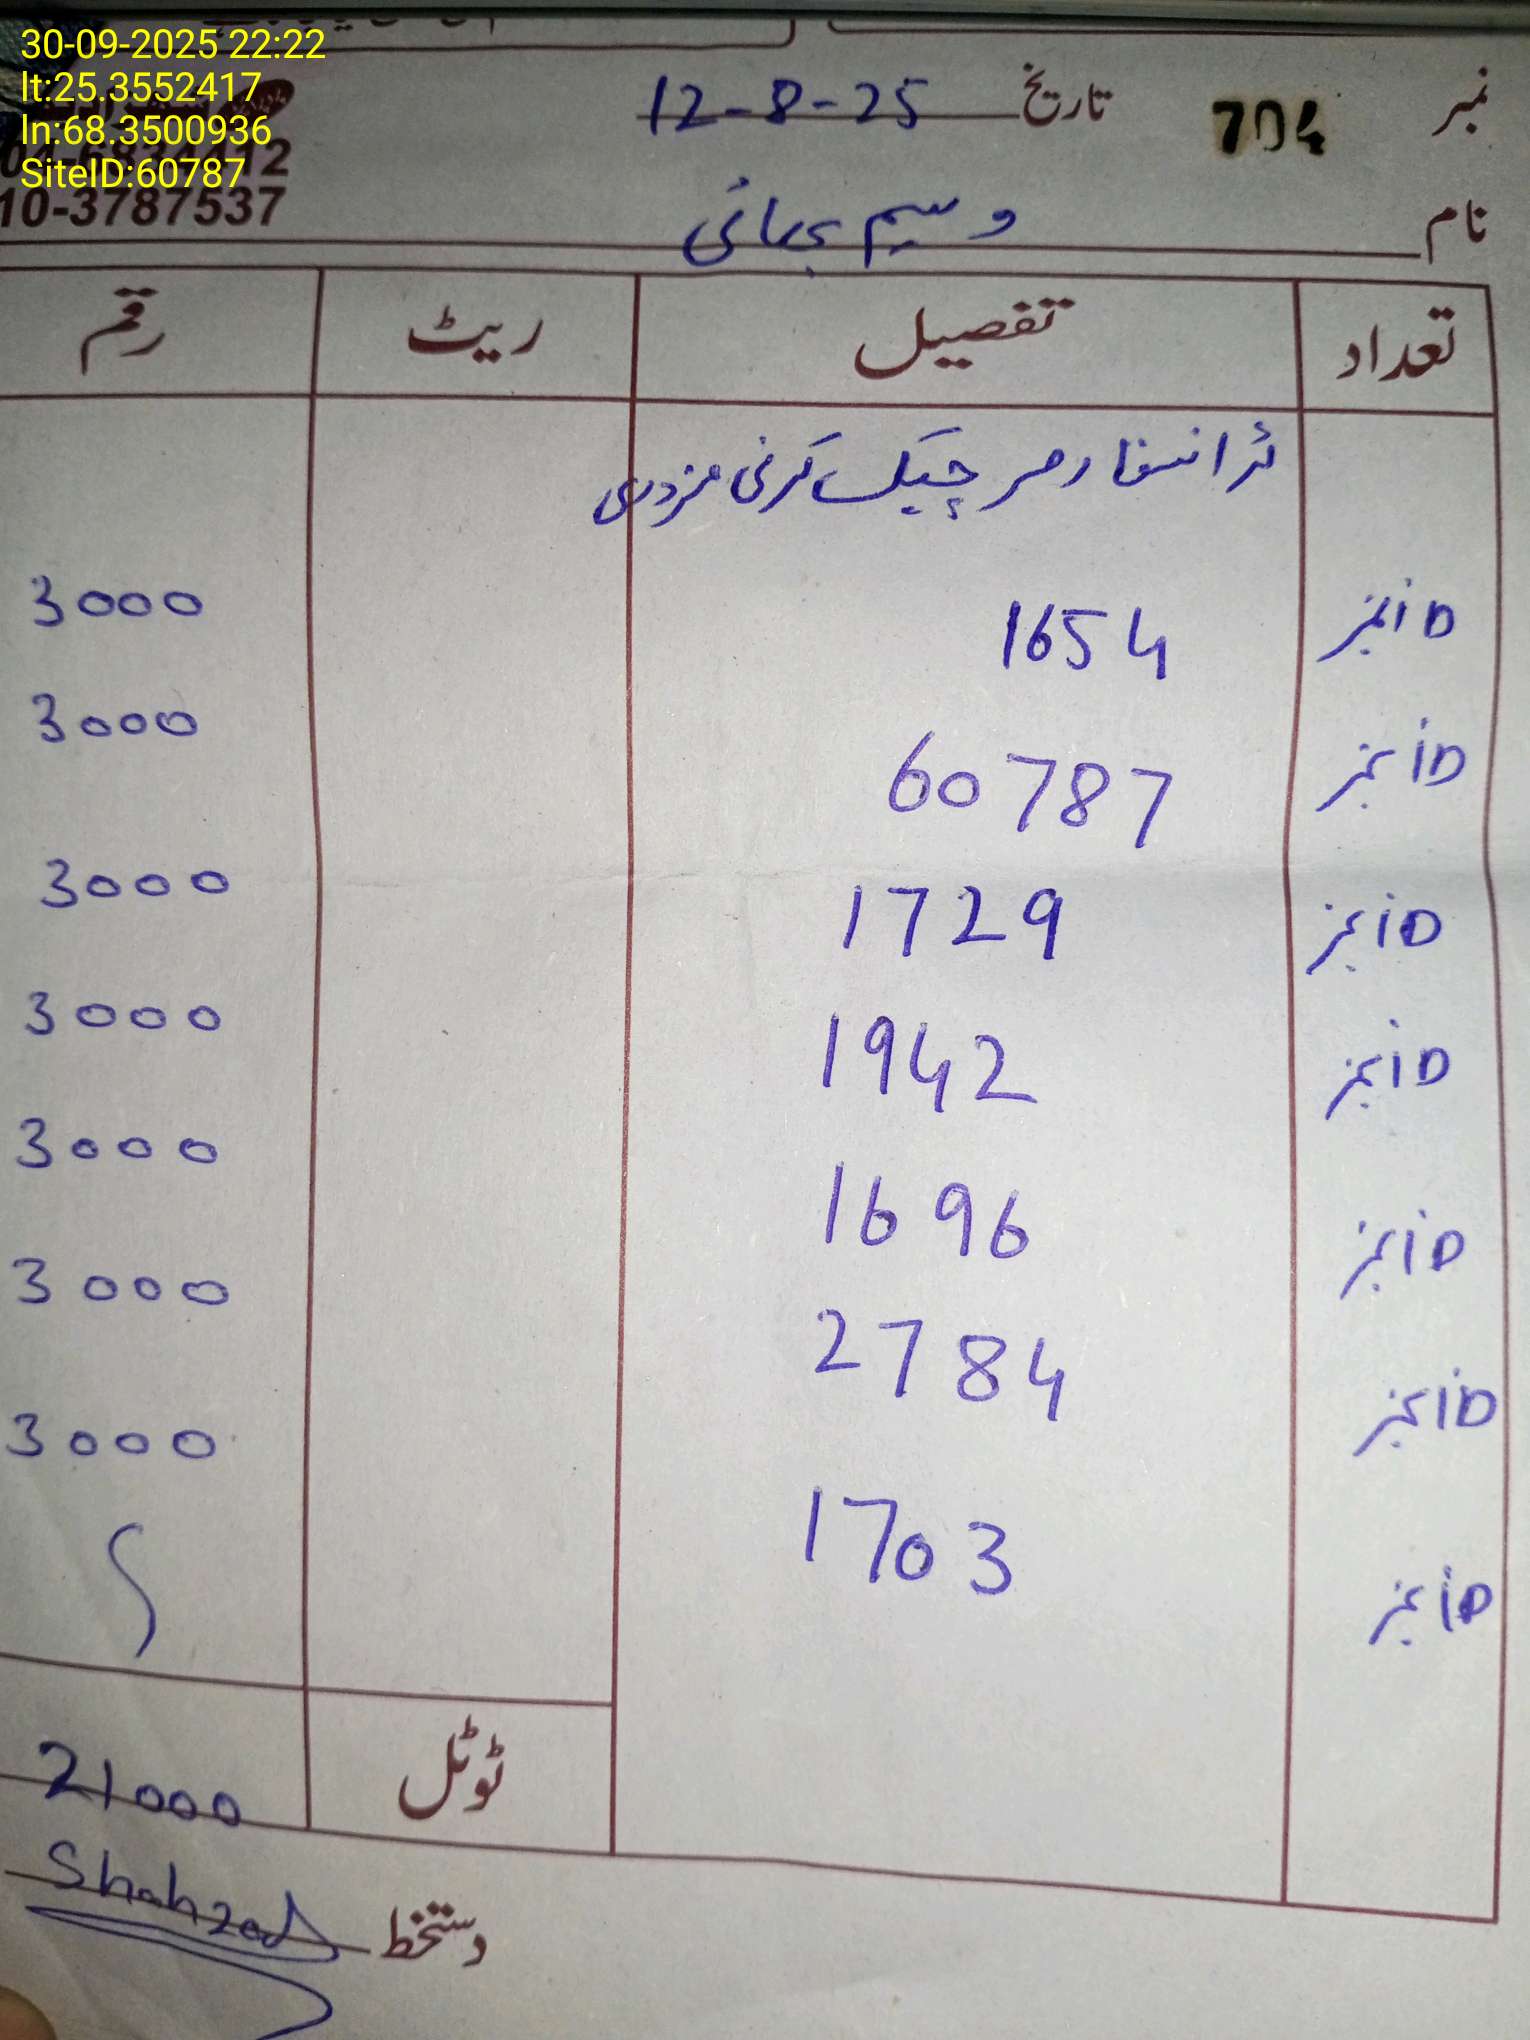 30-09-2025 22:22
lt:25.3552417
ln:68.3500936
SiteID:60787
10-3787537
نمبر 704 تاریخ 12-8-25
نام وسیم بھائی
تعداد تفصیل ریٹ رقم
ٹرانسفارمر چیک کرنی مزدوری
iD نمبر 1654 3000
iD نمبر 60787 3000
iD نمبر 1729 3000
iD نمبر 1942 3000
iD نمبر 1696 3000
iD نمبر 2784 3000
iD نمبر 1703 3000
ٹوٹل 21000
دستخط Shahzad